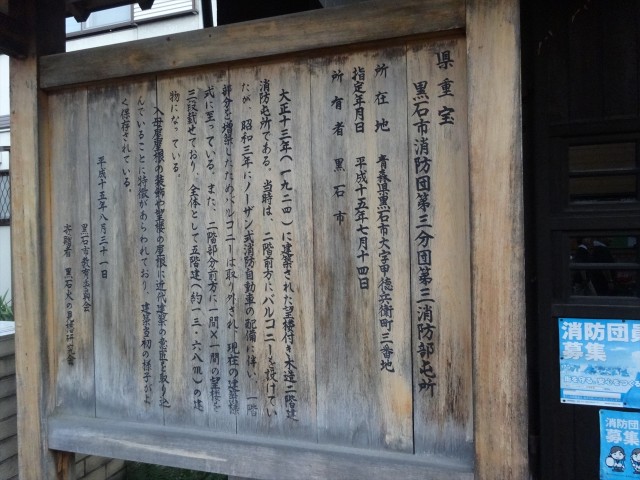 県重宝
黒石市消防団第三分団第三消防部屯所
所在地 青森県黒石市大字甲徳兵衛町三番地
指定年月日 平成十五年七月十四日
所有者 黒石市
大正十三年(一九二四)に建築された望楼付き木造二階建
消防屯所である。当時は、二階前方にバルコニーを設けてい
たが、昭和三年にノーザン式消防自動車の配備に伴い、一階
部分を増築したためバルコニーは取り外され、現在の建築様
式に至っている。また、二階部分前方に一間×一間の望楼を
三段載せており、全体として五階建(約一三・六八m)の建
物になっている。
入母屋屋根の装飾や望楼の屋根に近代建築の意匠を取り込
んでいることに特徴があらわれており、建築当初の様子がよ
く保存されている。
平成十五年八月三十一日
黒石市教育委員会
寄贈者 黒石火の見櫓研究会
消防団員
募集
消防団
募集